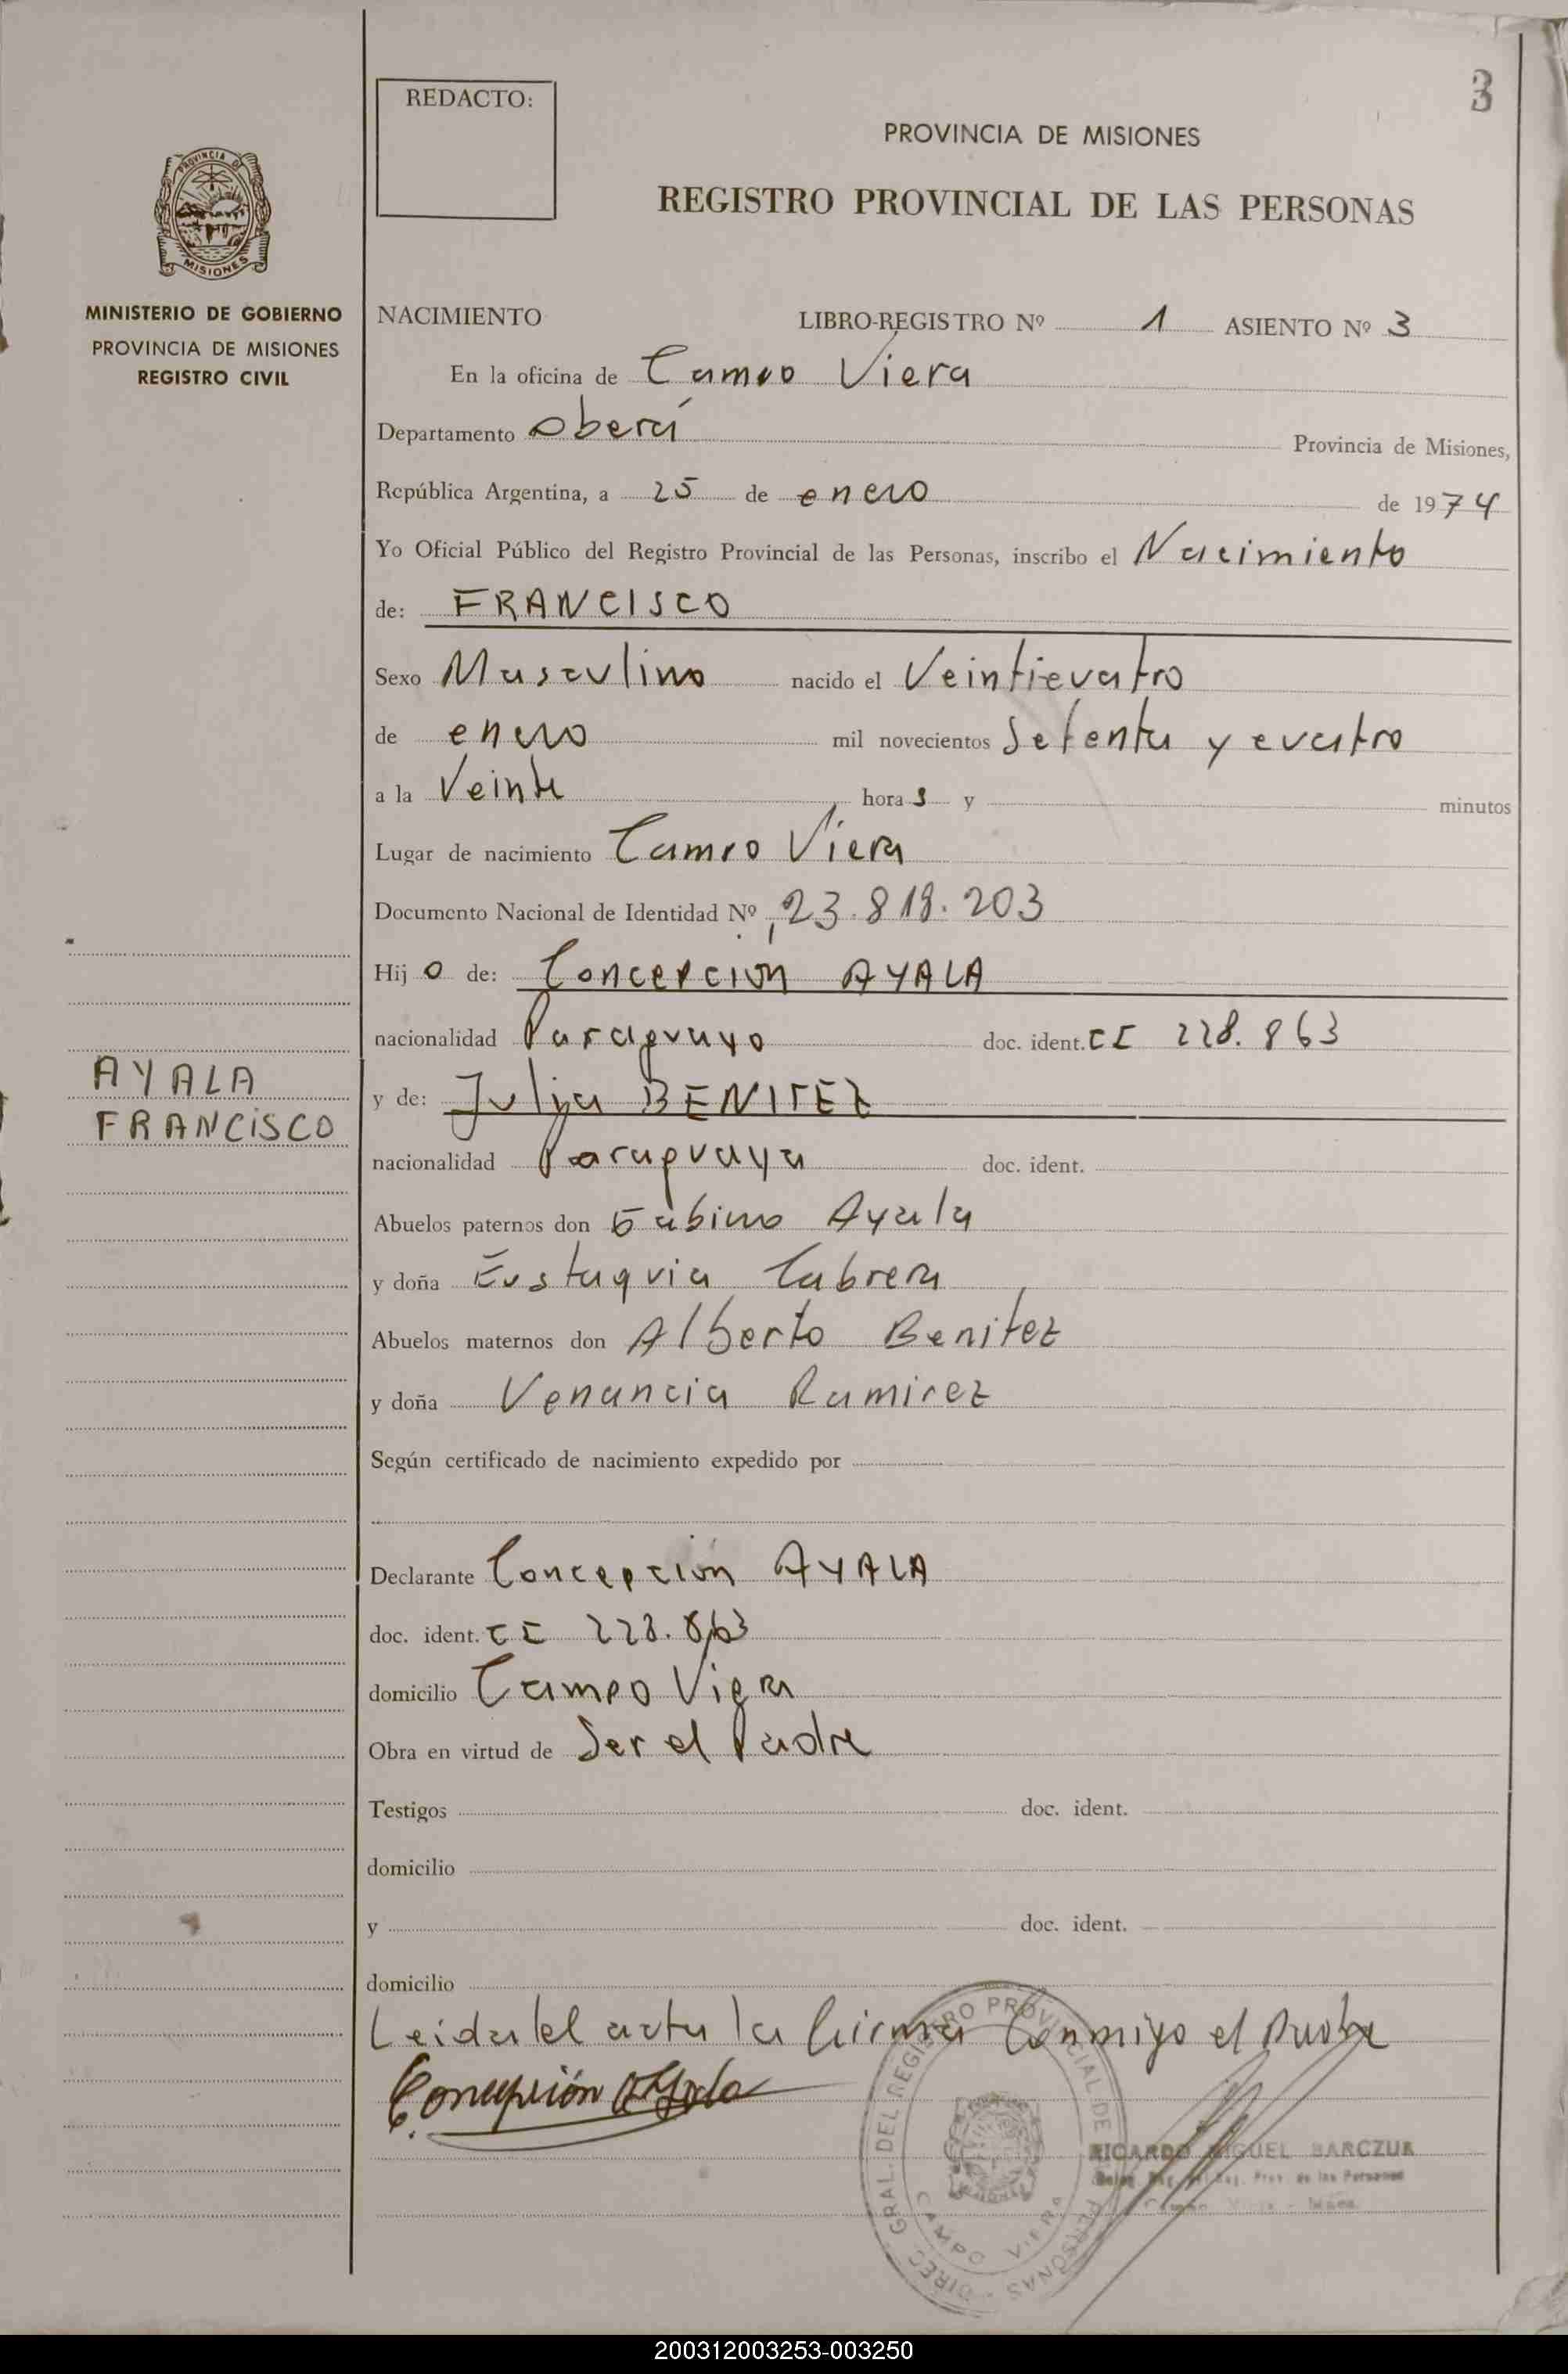 3
REDACTO:
PROVINCIA DE MISIONES
REGISTRO PROVINCIAL DE LAS PERSONAS
PROVINCIA DE
MISIONES
MINISTERIO DE GOBIERNO
PROVINCIA DE MISIONES
REGISTRO CIVIL
NACIMIENTO LIBRO-REGISTRO Nº 1 ASIENTO Nº 3
En la oficina de Campo Viera
Departamento Oberá Provincia de Misiones,
República Argentina, a 25 de enero de 1974
Yo Oficial Público del Registro Provincial de las Personas, inscribo el Nacimiento
de: FRANCISCO
Sexo Masculino nacido el Veinticuatro
de enero mil novecientos Setenta y cuatro
a la Veinte horas y minutos
Lugar de nacimiento Campo Viera
Documento Nacional de Identidad Nº 23.819.203
Hijo de: Concepcion AYALA
nacionalidad Paraguayo doc. ident. CI 228.863
AYALA
FRANCISCO
y de: Julia BENITEZ
nacionalidad Paraguaya doc. ident.
Abuelos paternos don Gabino Ayala
y doña Eustaquia Cabrera
Abuelos maternos don Alberto Benitez
y doña Venancia Ramirez
Según certificado de nacimiento expedido por
Declarante Concepción AYALA
doc. ident. CI 228.863
domicilio Campo Viera
Obra en virtud de Ser el Padre
Testigos doc. ident.
domicilio
y doc. ident.
domicilio
Leida el acta la firma Conmigo el Padre
Concepción Ayala
DIREC. GRAL. DEL REGISTRO PROVINCIAL DE PERSONAS
CAMPO VIERA
RICARDO MIGUEL BARCZUK
Prov. de las Personas
200312003253-003250